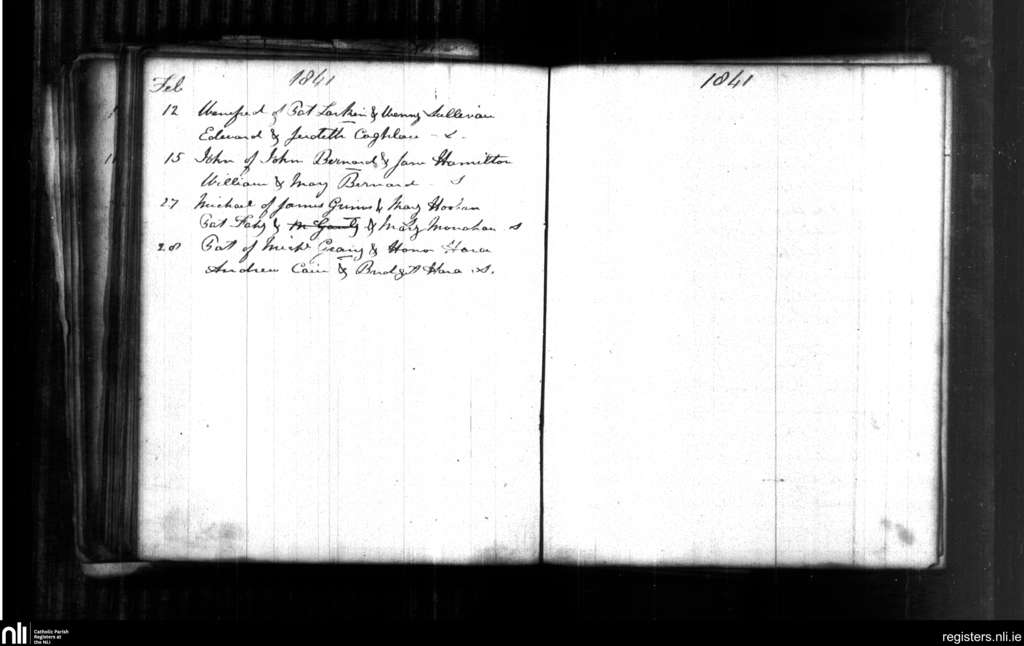 Feb 1841
12 Wenefred of Pat Larkin & Wenny Sullivan
Edward & Coghlan - s.
15 John of John Bernard & Jane Hamilton
William & Mary Bernard - s
27 Michael of James Grims & Mary Hoohan
Pat Fahy & & Mary Monahan s
28 Pat of Michl Geany & Honor Hara
Andrew Cain & Bridget Hara s.
1841
nli
Catholic Parish
Registers at
the NLI
registers.nli.ie